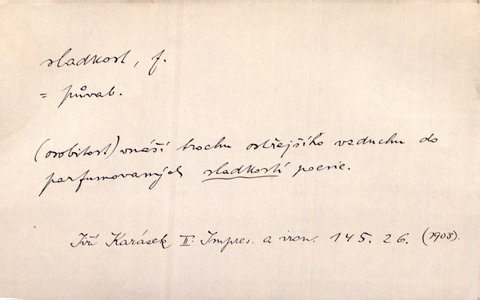 sladkost, f.
= půvab.
(osobitost) vnáší trochu ostřejšího vzduchu do
parfumovaných sladkostí poesie.
Jiří Karásek II: Impres. a iron. 145. 26. (1908).